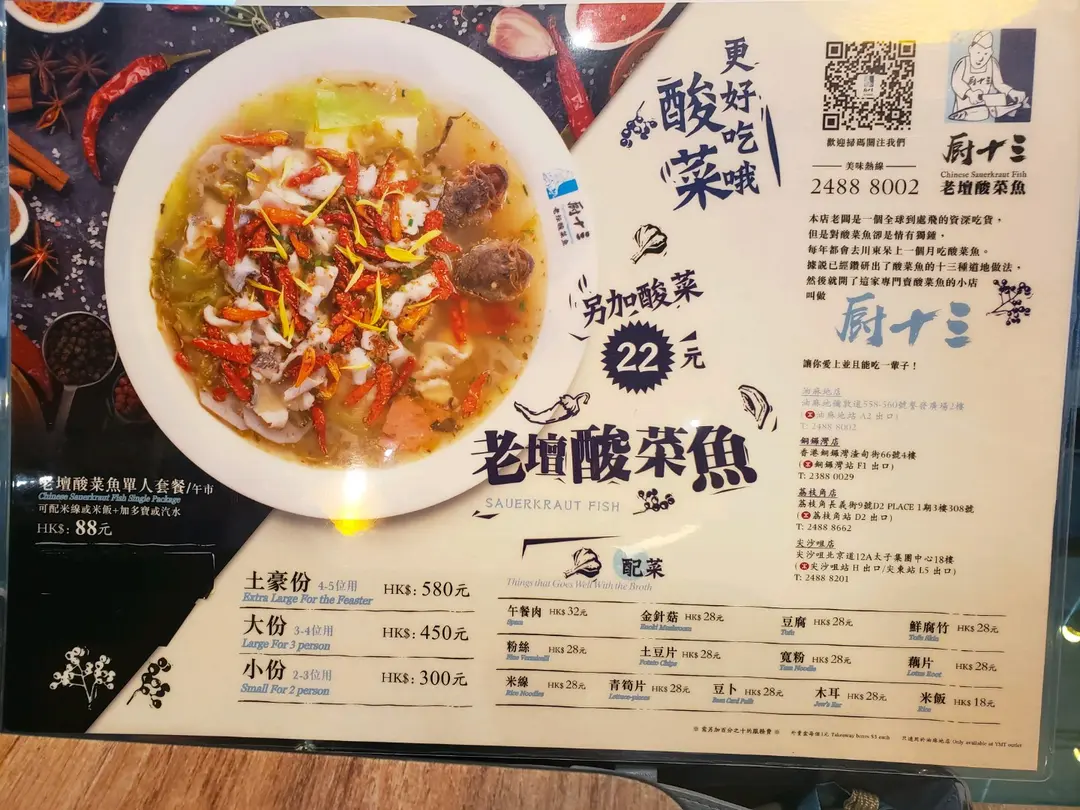 更好吃哦
酸菜
歡迎掃碼關注我們
美味熱線
2488 8002
廚十三
厨十三
Chinese Sauerkraut Fish
老壇酸菜魚
本店老闆是一個全球到處飛的資深吃貨，
但是對酸菜魚卻是情有獨鍾，
每年都會去川東呆上一個月吃酸菜魚。
據說已經鑽研出了酸菜魚的十三種道地做法，
然後就開了這家專門賣酸菜魚的小店
叫做
厨十三
讓你愛上並且能吃一輩子！
油麻地店
油麻地彌敦道558-560號譽發廣場2樓
(油麻地站 A2 出口)
T: 2488 8002
銅鑼灣店
香港銅鑼灣渣甸街66號4樓
(銅鑼灣站 F1 出口)
T: 2388 0029
荔枝角店
荔枝角長義街9號D2 PLACE 1期3樓308號
(荔枝角站 D2 出口)
T: 2488 8662
尖沙咀店
尖沙咀北京道12A太子集團中心18樓
(尖沙咀站 H 出口/尖東站 L5 出口)
T: 2488 8201
厨十三
老壇酸菜魚
另加酸菜
22元
老壇酸菜魚
SAUERKRAUT FISH
老壇酸菜魚單人套餐/午市
Chinese Sauerkraut Fish Single Package
可配米線或米飯+加多寶或汽水
HK$: 88元
土豪份 4-5位用 HK$: 580元
Extra Large For the Feaster
大份 3-4位用 HK$: 450元
Large For 3 person
小份 2-3位用 HK$: 300元
Small For 2 person
配菜
Things that Goes Well With the Broth
午餐肉 HK$ 32元 金針菇 HK$ 28元 豆腐 HK$ 28元 鮮腐竹 HK$ 28元
Spam Enoki Mushroom Tofu Tofu Skin
粉絲 HK$ 28元 土豆片 HK$ 28元 寬粉 HK$ 28元 藕片 HK$ 28元
Rice Vermicelli Potato Chips Yam Noodle Lotus Root
米線 HK$ 28元 青筍片 HK$ 28元 豆卜 HK$ 28元 木耳 HK$ 28元 米飯 HK$ 18元
Rice Noodles Lettuce-pieces Bean Curd Puffs Jew's Ear Rice
※ 需另加百分之十的服務費 ※ 外賣盒每個3元 Takeaway boxes $3 each 只適用於油麻地店 Only available at YMT outlet